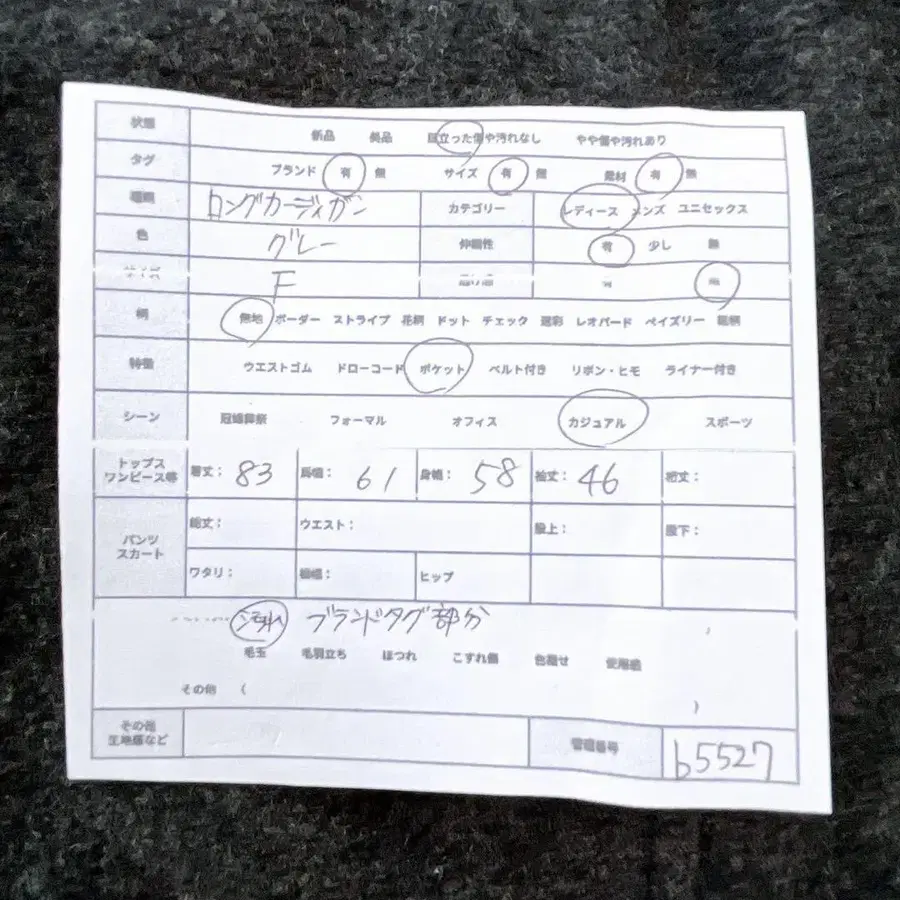 状態 新品 美品 目立った傷や汚れなし やや傷や汚れあり
タグ ブランド 有 無 サイズ 有 無 素材 有 無
種類 ロングカーディガン カテゴリー レディース メンズ ユニセックス
色 グレー 伸縮性 有 少し 無
F 有 無
柄 無地 ボーダー ストライプ 花柄 ドット チェック 迷彩 レオパード ペイズリー 総柄
特徴 ウエストゴム ドローコード ポケット ベルト付き リボン・ヒモ ライナー付き
シーン 冠婚葬祭 フォーマル オフィス カジュアル スポーツ
トップス
ワンピース等 着丈: 83 肩幅: 61 身幅: 58 袖丈: 46 裄丈:
パンツ
スカート 総丈: ウエスト: 股上: 股下:
ワタリ: 裾幅: ヒップ
汚れ ブランドタグ部分
毛玉 毛羽立ち ほつれ こすれ傷 色褪せ 使用感
その他 ( )
その他
生地感など 管理番号 b5527